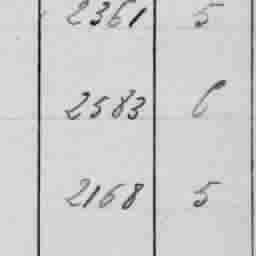 2361 5
2583 6
2168 5